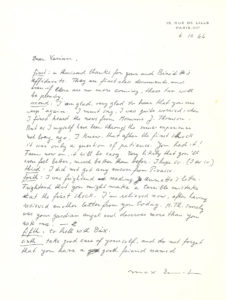 19 RUE DE LILLE
PARIS. VII
6 10 66
Dear Varian:
first: a thousand thanks for yours and
affidavits. They are first class documents and
even if there are no more coming, these two will
be plenty.
second: I am glad, very glad to hear that you are
up again. I must say, I was quite worried when
I first heard the news from
But as I myself have been through the same experience
not long ago, I knew, that after the first shock
it was only a question of patience. You had it!
From now on it will be easy. Very likely that you will
soon feel better, much better than before. I hope so. (I do so)
third: I did not get any answer from Picasso
fourth: I was frightened reading letter
frightened that you might make a terrible mistake
at the first check. I'm relieved now, after having
received another letter from you today.
was your guardian angel and deserves more than you
ask me,
fifth: to hell with
sixth: take good care of yourself, and do not forget
that you have a good friend named
max